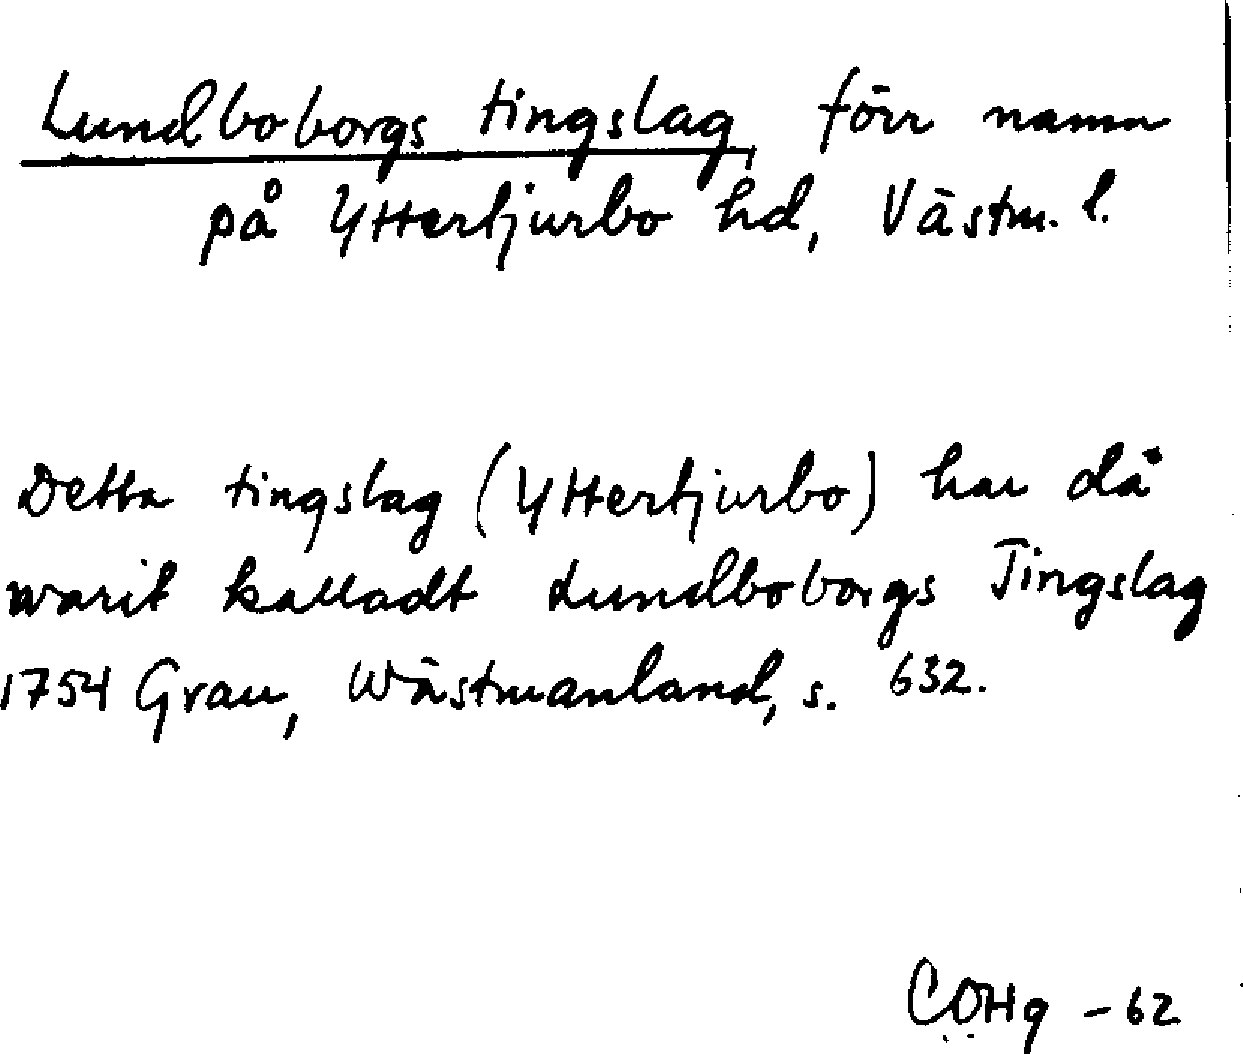 Lundboborgs tingslag, förr namn
på Yttertjurbo hd, Västm. l.
Detta tingslag (Yttertjurbo) har då
warit kalladt Lundboborgs Tingslag
1754 Grau, Wästmanland, s. 632.
COHg -62